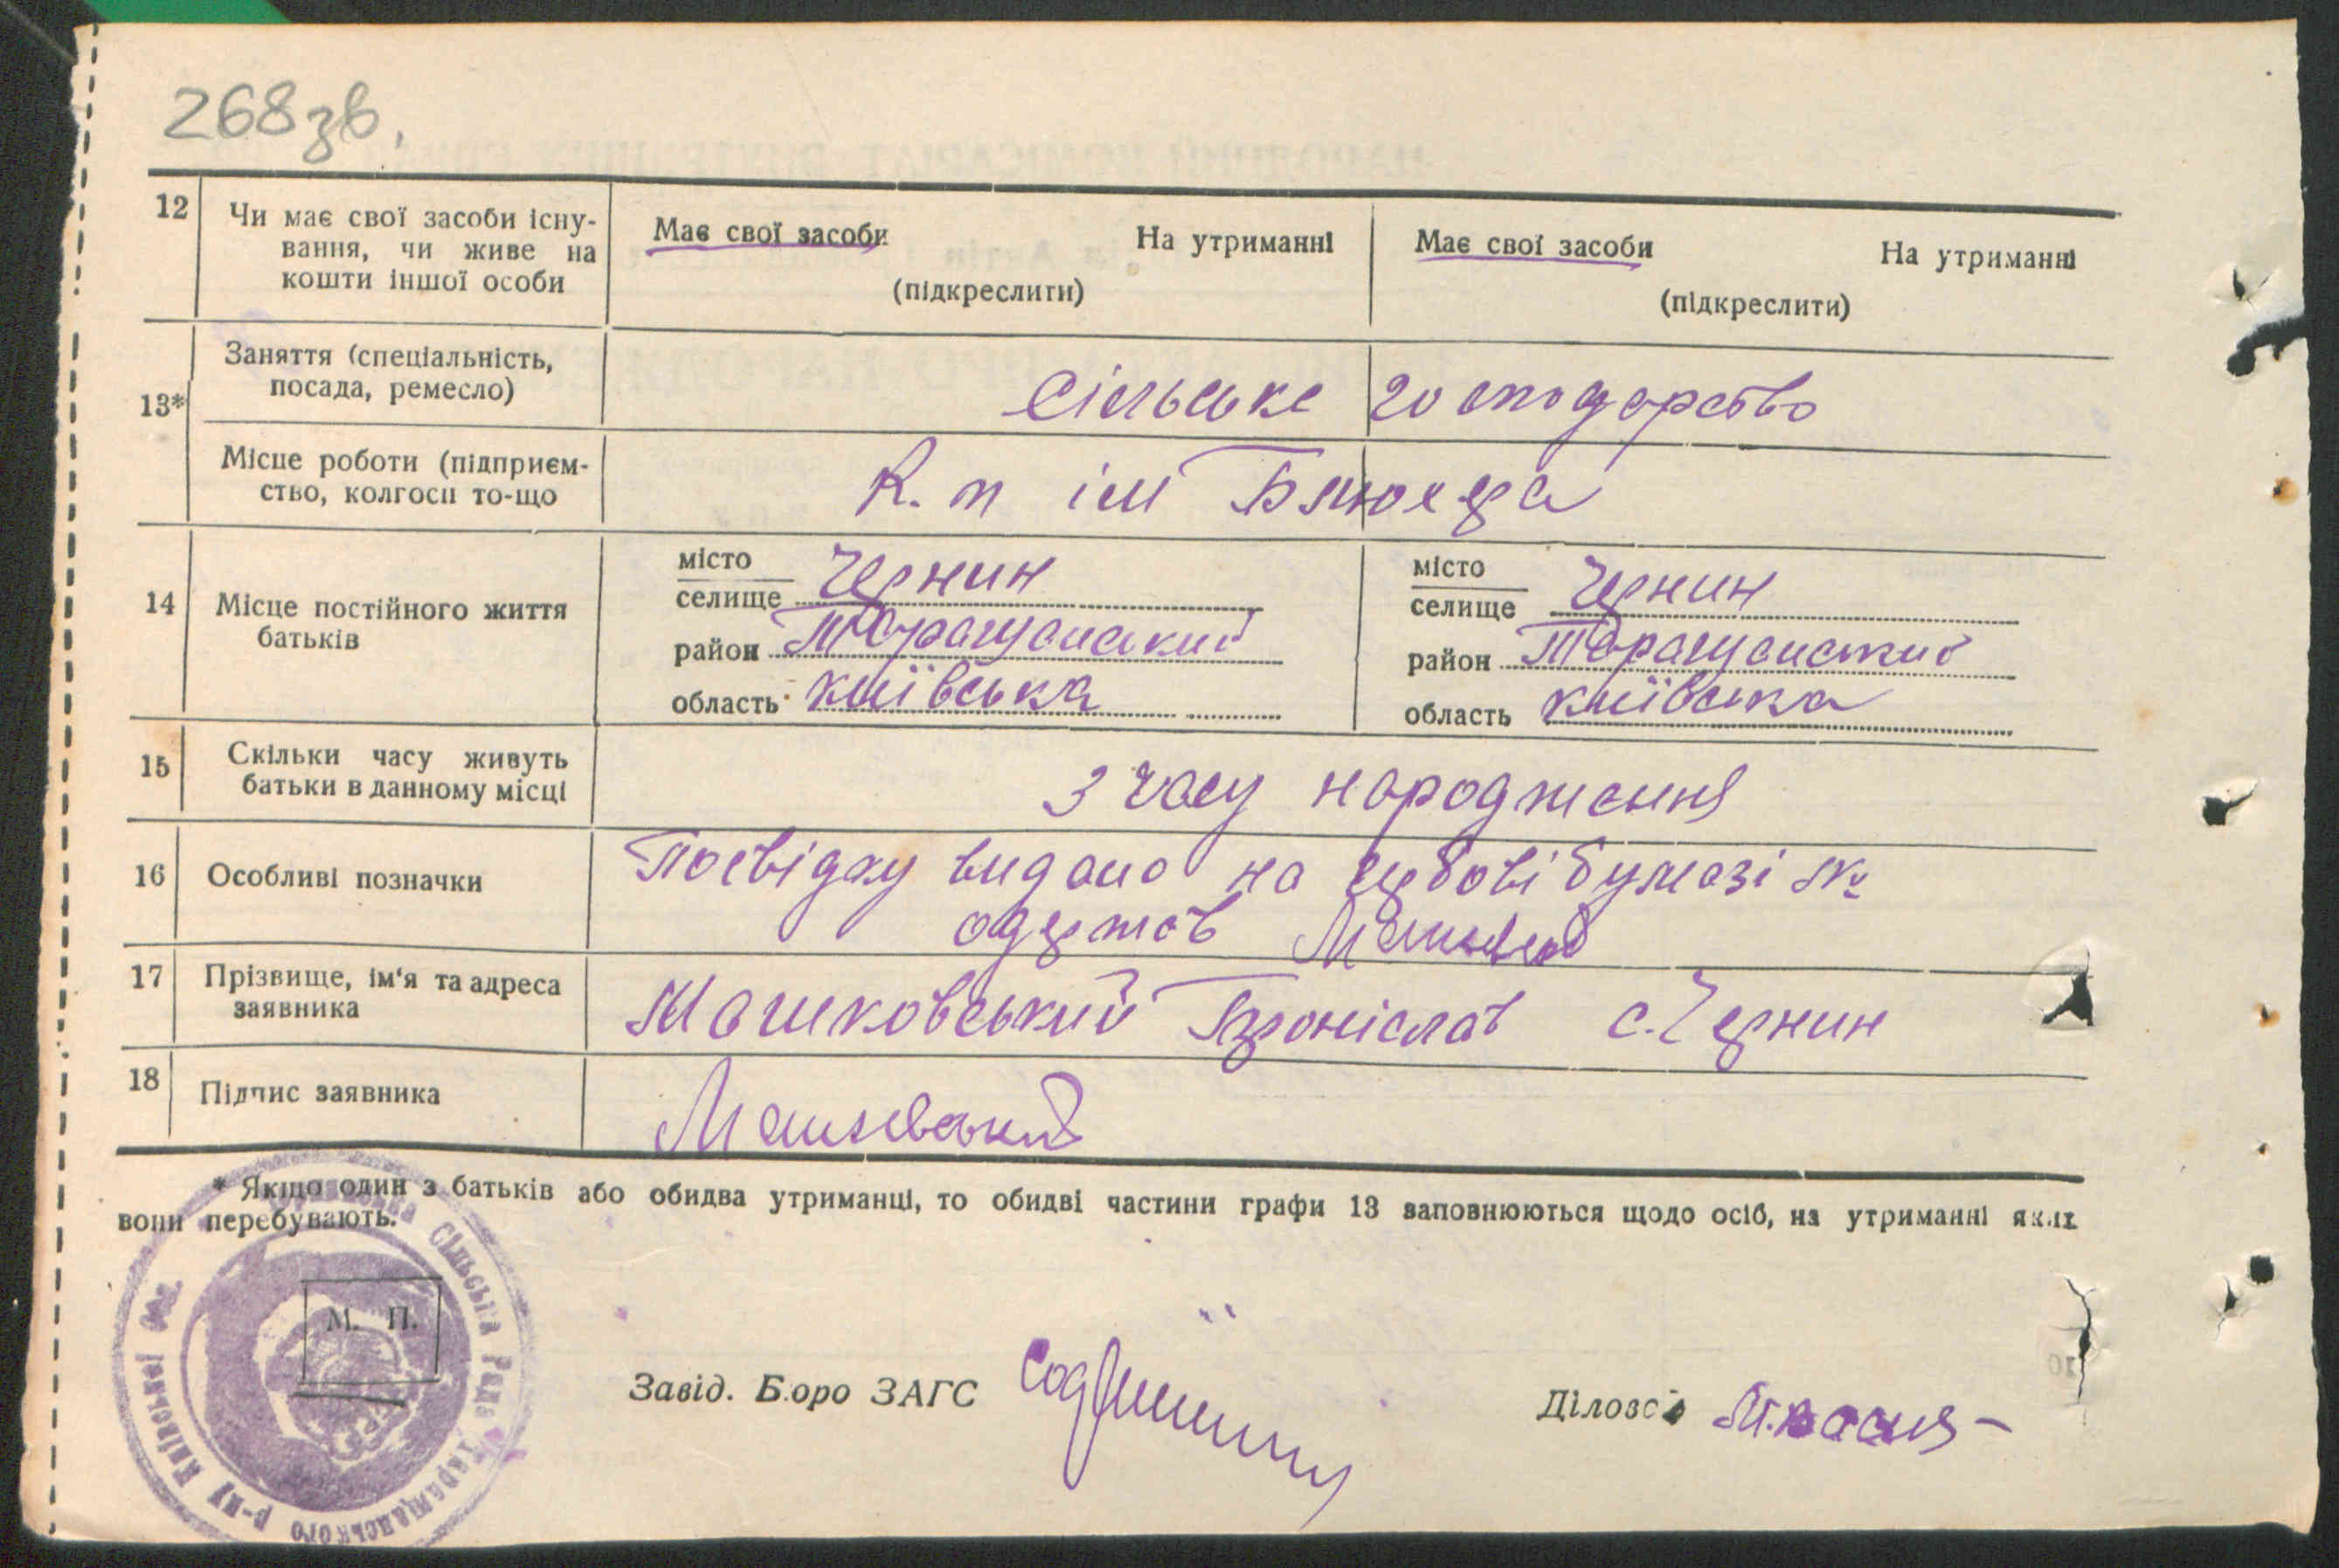 268зв.
12 Чи має свої засоби існу-
вання, чи живе на
кошти іншої особи
Має свої засоби На утриманні
(підкреслити)
Має свої засоби На утриманні
(підкреслити)
13*
Заняття (спеціальність,
посада, ремесло)
сільське господарство
Місце роботи (підприєм-
ство, колгосп то-що
К. п ім Блюхера
14 Місце постійного життя
батьків
місто
селище Чернин
район Таращанський
область київська
місто
селище Чернин
район Таращанський
область київська
15 Скільки часу живуть
батьки в данному місці
З часу народження
16 Особливі позначки
Посвідку видано на гербові бумазі №
одержав
17 Прізвище, ім'я та адреса
заявника
Машковський Броніслав с. Чернин
18 Підпис заявника
Машковський
* Якщо один з батьків або обидва утриманці, то обидві частини графи 13 заповнюються щодо осіб, на утриманні яких
вони перебувають.
М. П.
Сільська Рада Таращанського р-ну Київської обл.
Завід. Бюро ЗАГС
Діловод